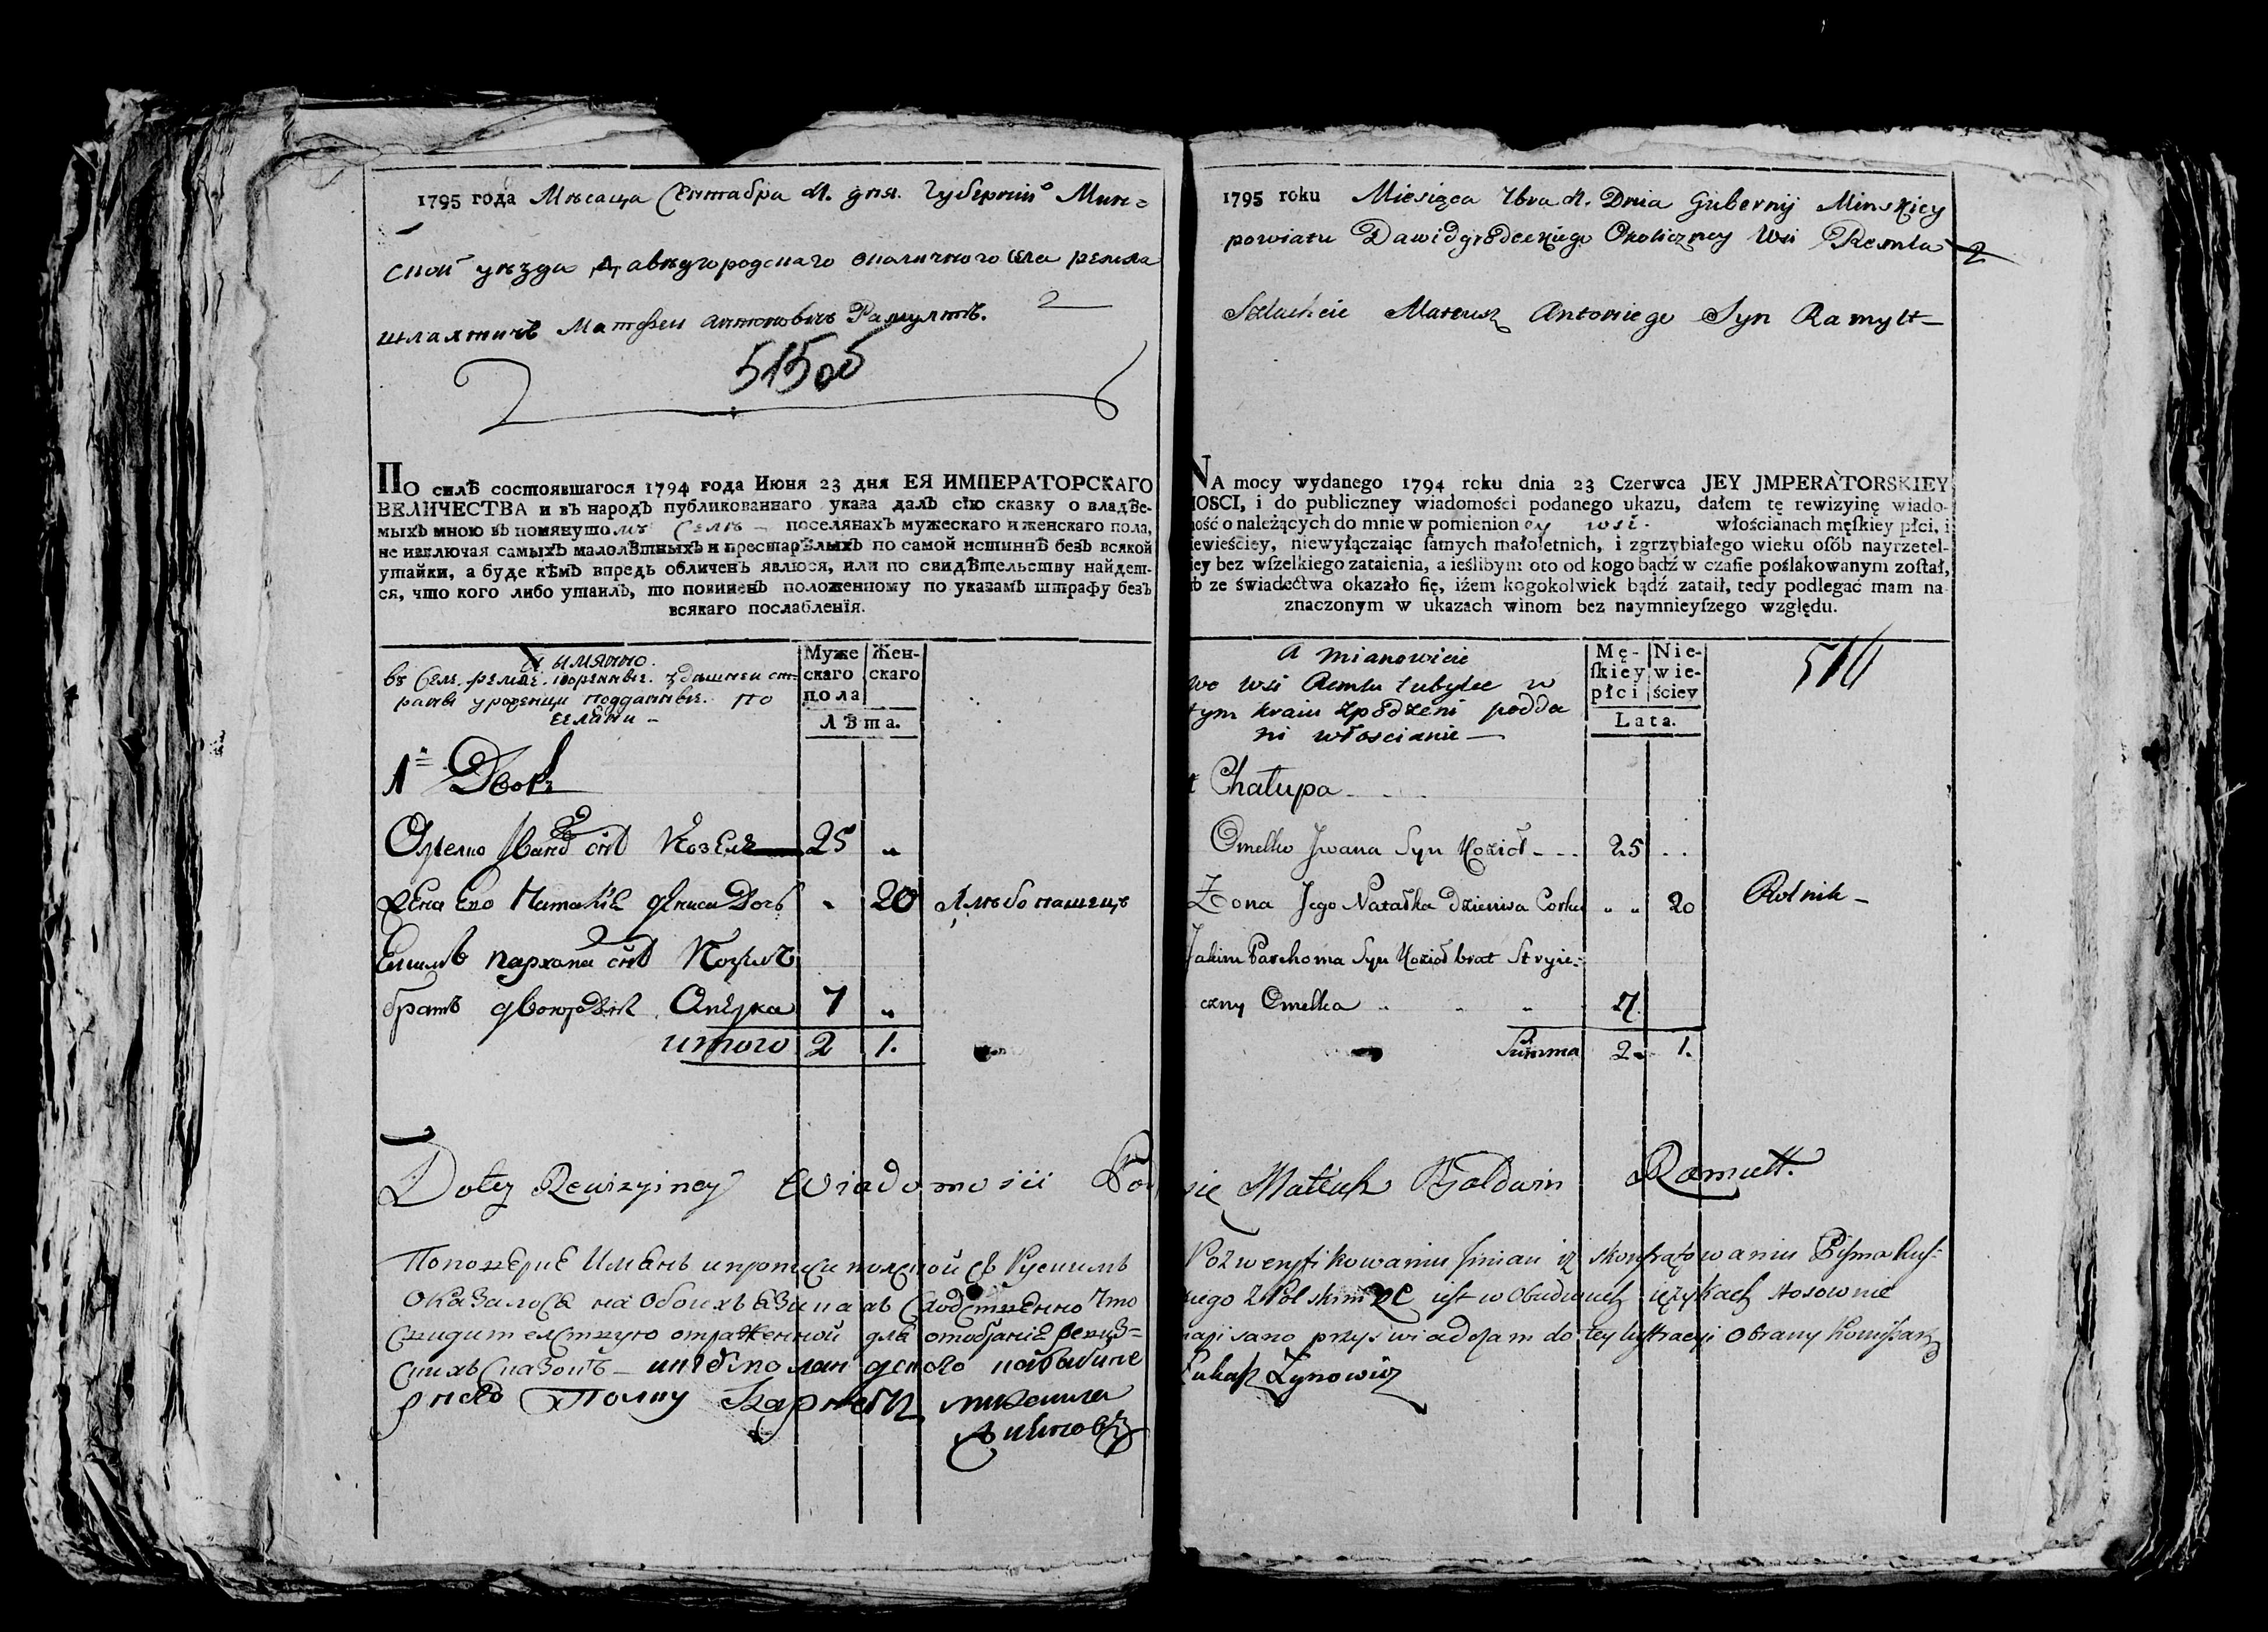 1795 года Мѣсаца Сентабра 21. дня. Губерніи Мин=
ской уѣзда Давыдгородскаго околичного Села Ремля
шляхтичъ Матфеи Антоновичъ Рамултъ.
515 об
По силѣ состоявшагося 1794 года Июня 23 дня ЕЯ ИМПЕРАТОРСКАГО
ВЕЛИЧЕСТВА и въ народъ публикованнаго указа далъ сїю сказку о владѣе-
мыхъ мною въ помянутомъ Селѣ поселянахъ мужескаго и женскаго пола,
не изключая самыхъ малолѣтныхъ и престарѣлыхъ по самой истиннѣ безъ всякой
утайки, а буде кѣмъ впредь обличенъ явлюся, или по свидѣтельству найдет-
ся, что кого либо утаилъ, то повиненъ положенному по указамъ штрафу безъ
всякаго послабленїя.
А имянно.
въ Селе Ремле. коренныe. здашнеи ст=
раны уроженци подданныe. по
селяни
Муже
скаго
пола
Жен-
скаго
Лѣта.
1й Дворъ
Омелко Ивана снъ Козелъ 25 "
Жена Его Наталя Дениса Дочь " 20 Хлѣбопашецъ
Екимъ Пархома снъ Козелъ
братъ двоюродный Омелка 7 "
итого 2 1.
Dotey Rewizyiney Wiadomosci Pod
Оказалось на обоихъ Языкахъ
1795 roku Miesiąca 7bra 21. Dnia Gubernij Minskiey
powiatu Dawidgrodeckiego Okoliczney Wsi Remla
Szlachcic Mateusz Antoniego Syn Ramylt
516
NA mocy wydanego 1794 roku dnia 23 Czerwca JEY JMPERATORSKIEY
MOSCI, i do publiczney wiadomości podanego ukazu, dałem tę rewizyinę wiado-
mość o należących do mnie w pomienioney wsi. włościanach męſkiey płci, i
niewieściey, niewyłączaiąc ſamych małoletnich, i zgrzybiałego wieku oſób nayrzetel-
niey bez wſzelkiego zataienia, a ieślibym oto od kogo bądź w czaſie poślakowanym zoſtał,
lub ze świadectwa okazało ſię, iżem kogokolwiek bądź zataił, tedy podlegać mam na-
znaczonym w ukazach winom bez naymnieyſzego względu.
A mianowicie
we wsi Remlu tubylce w
tym kraiu zpodzeni podda
ni włoscianie
Mę-
ſkiey
płci
Nie-
wie-
ściey
Lata.
1 Chałupa
Omelko Jwana Syn Kozioł 25 ..
Żona Jego Natałka Dzienisa Corka " " 20 Rolnik
Jakim Parchoma Syn Kozioł brat Stryie=
czny Omelka 7.
Summa 2 1.
sie Mateusz Baldwin Ramult.
Po zweryfikowaniu Jmian i skontrątowaniu Pisma Rus=
kiego z Polskim że iest w obudwuch ięzykach stosownie
napisano przyswiadczam do tey lustracyi obrany Komisarz
Łukasz Zynowicz